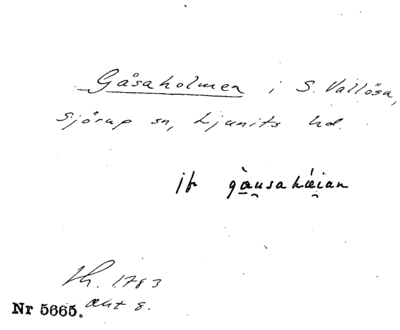 Gåsaholmen i S. Vallösa,
Sjörup sn, Ljunits hd.
jfr gàu̯sahái̯an
Lh. 1783
akt 8.
Nr 5665.